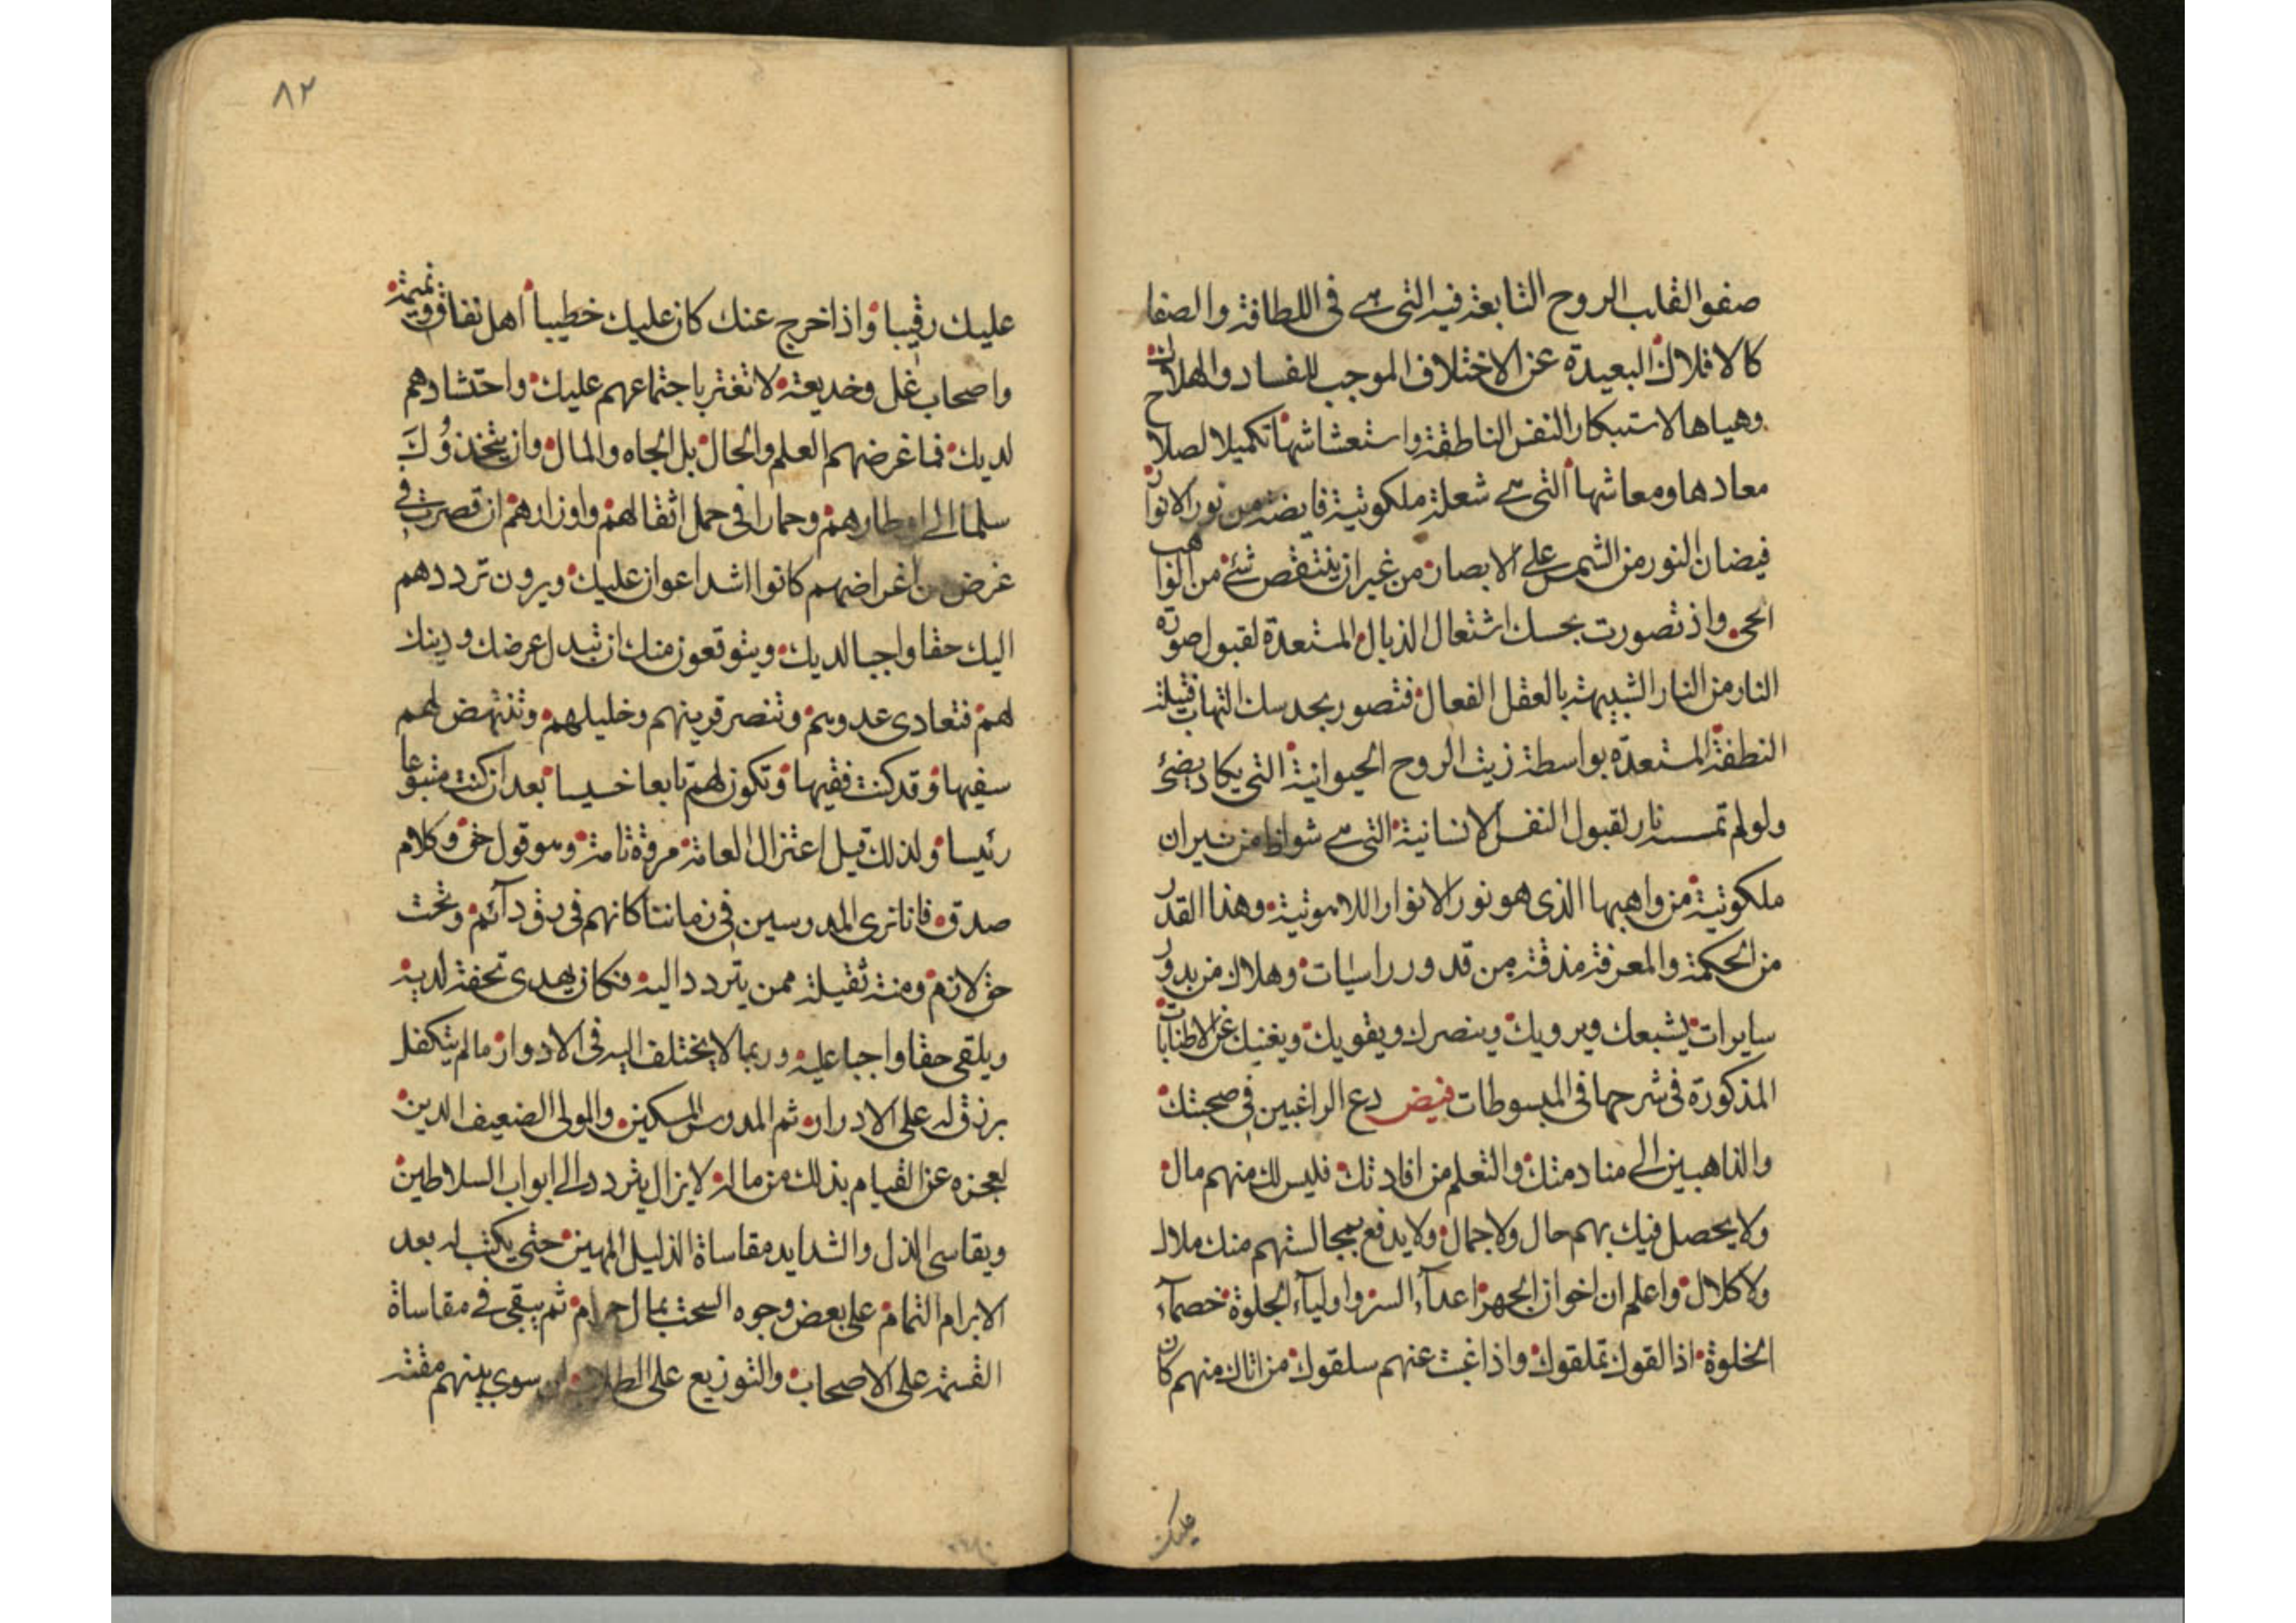 صفو القلب الروح التابعة فيه التي هي في اللطافة والصفا
كالافلاك البعيدة عن الاختلاف الموجب للفساد والهلاك
وهياها لاستبكار النفس الناطقة واستعشاشها تكميلا لصلاح
معادها ومعاشها التي هي شعلة ملكوتية فايضة من نور الانوار
فيضان النور من الشمس على الابصار من غير ان ينتقص شئ من الواهب
الحي واذ تصورت بحسك اشتعال الذبال المستعدة لقبول صورة
النار من النار الشبيهة بالعقل الفعال فتصور بحدسك التهاب فتيلة
النطفة المستعدة بواسطة زيت الروح الحيوانية التي يكاد يضئ
ولو لم تمسسه نار لقبول النفس الانسانية التي هي شواظ من نيران
ملكوتية من واهبها الذي هو نور الانوار اللاهوتية وهذا القدر
من الحكمة والمعرفة مذقة من قدور راسيات وهلال من بدور
سايرات يشبعك ويرويك وينصرك ويقويك ويغنيك عن الاطنابات
المذكورة في شرحها في المبسوطات فيض دع الراغبين في صحبتك
والذاهبين الى منادمتك والتعلم من افادتك فليس لك منهم مال
ولا يحصل فيك بهم حال ولا جمال ولا يدفع بمجالستهم منك ملال
ولا كلال واعلم ان اخوان الجهر اعدآء السر واوليآء الجلوة خصمآء
الخلوة اذا لقوك تملقوك واذا غبت عنهم سلقوك من اتاك منهم كان
عليك
٨٢
عليك رقيبا واذا خرج عنك كان عليك خطيبا اهل نفاق ونميمة
واصحاب غل وخديعة لا تغتر باجتماعهم عليك واحتشادهم
لديك فما غرضهم العلم والحال بل الجاه والمال وان يتخذوك
سلما الى اوطارهم وحمارا في حمل اثقالهم واوزارهم ان قصرت في
غرض من اغراضهم كانوا اشد اعوان عليك ويرون ترددهم
اليك حقا واجبا لديك ويتوقعون منك ان تبدل عرضك ودينك
لهم فتعادي عدوهم وتنصر قرينهم وخليلهم وتنتهض لهم
سفيها وقد كنت فقيها وتكون لهم تابعا خسيسا بعد ان كنت متبوعا
رئيسا ولذلك قيل اعتزال العامة مروة تامة وهو قول حق وكلام
صدق فانا نرى المدرسين في زماننا كانهم في رق دآئم وتحت
حق لازم ومنة ثقيلة ممن يتردد اليه فكان يهدي تحفة لديه
ويلقي حقا واجبا عليه وربما لا يختلف اليه في الادوار ما لم يتكفل
برزق له على الادرار ثم المدرس المسكين والمولى الضعيف الدين
لعجزه عن القيام بذلك من ماله لا يزال يتردد الى ابواب السلاطين
ويقاسي الذل والشدايد مقاساة الذليل المهين حتى يكتب له بعد
الابرام التمام على بعض وجوه السحت بمال حرام ثم يبقى في مقاساة
القسمة على الاصحاب والتوزيع على الطلاب ان سوى بينهم مقته